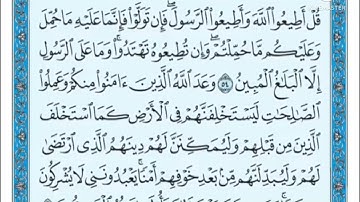 قُلْ أَطِيعُوا۟ ٱللَّهَ وَأَطِيعُوا۟ ٱلرَّسُولَ ۖ فَإِن تَوَلَّوْا۟ فَإِنَّمَا عَلَيْهِ مَا حُمِّلَ
وَعَلَيْكُم مَّا حُمِّلْتُمْ ۖ وَإِن تُطِيعُوهُ تَهْتَدُوا۟ ۚ وَمَا عَلَى ٱلرَّسُولِ
إِلَّا ٱلْبَلَٰغُ ٱلْمُبِينُ ٥٤ وَعَدَ ٱللَّهُ ٱلَّذِينَ ءَامَنُوا۟ مِنكُمْ وَعَمِلُوا۟
ٱلصَّٰلِحَٰتِ لَيَسْتَخْلِفَنَّهُمْ فِى ٱلْأَرْضِ كَمَا ٱسْتَخْلَفَ
ٱلَّذِينَ مِن قَبْلِهِمْ وَلَيُمَكِّنَنَّ لَهُمْ دِينَهُمُ ٱلَّذِى ٱرْتَضَىٰ
لَهُمْ وَلَيُبَدِّلَنَّهُم مِّنۢ بَعْدِ خَوْفِهِمْ أَمْنًا ۚ يَعْبُدُونَنِى لَا يُشْرِكُونَ